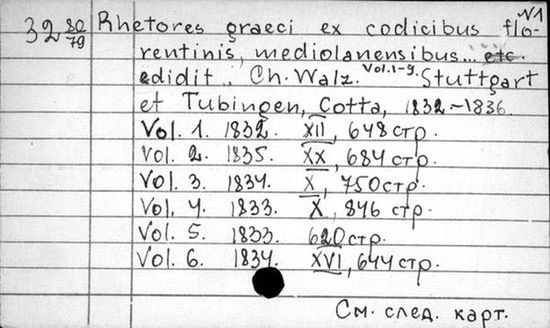 №1
32 80/79 Rhetores graeci ex codicibus flo-
rentinis, mediolanensibus... etc.
edidit.. Ch. Walz. Vol. 1-9. Stuttgart
et Tubingen, Cotta, 1832-1836.
Vol. 1. 1832. XII, 648 стр.
Vol. 2. 1835. XX, 684 стр.
Vol. 3. 1834. X, 750 стр.
Vol. 4. 1833. X, 846 стр.
Vol. 5. 1833. 620 стр.
Vol. 6. 1834. XVI, 644 стр.
См. след. карт.